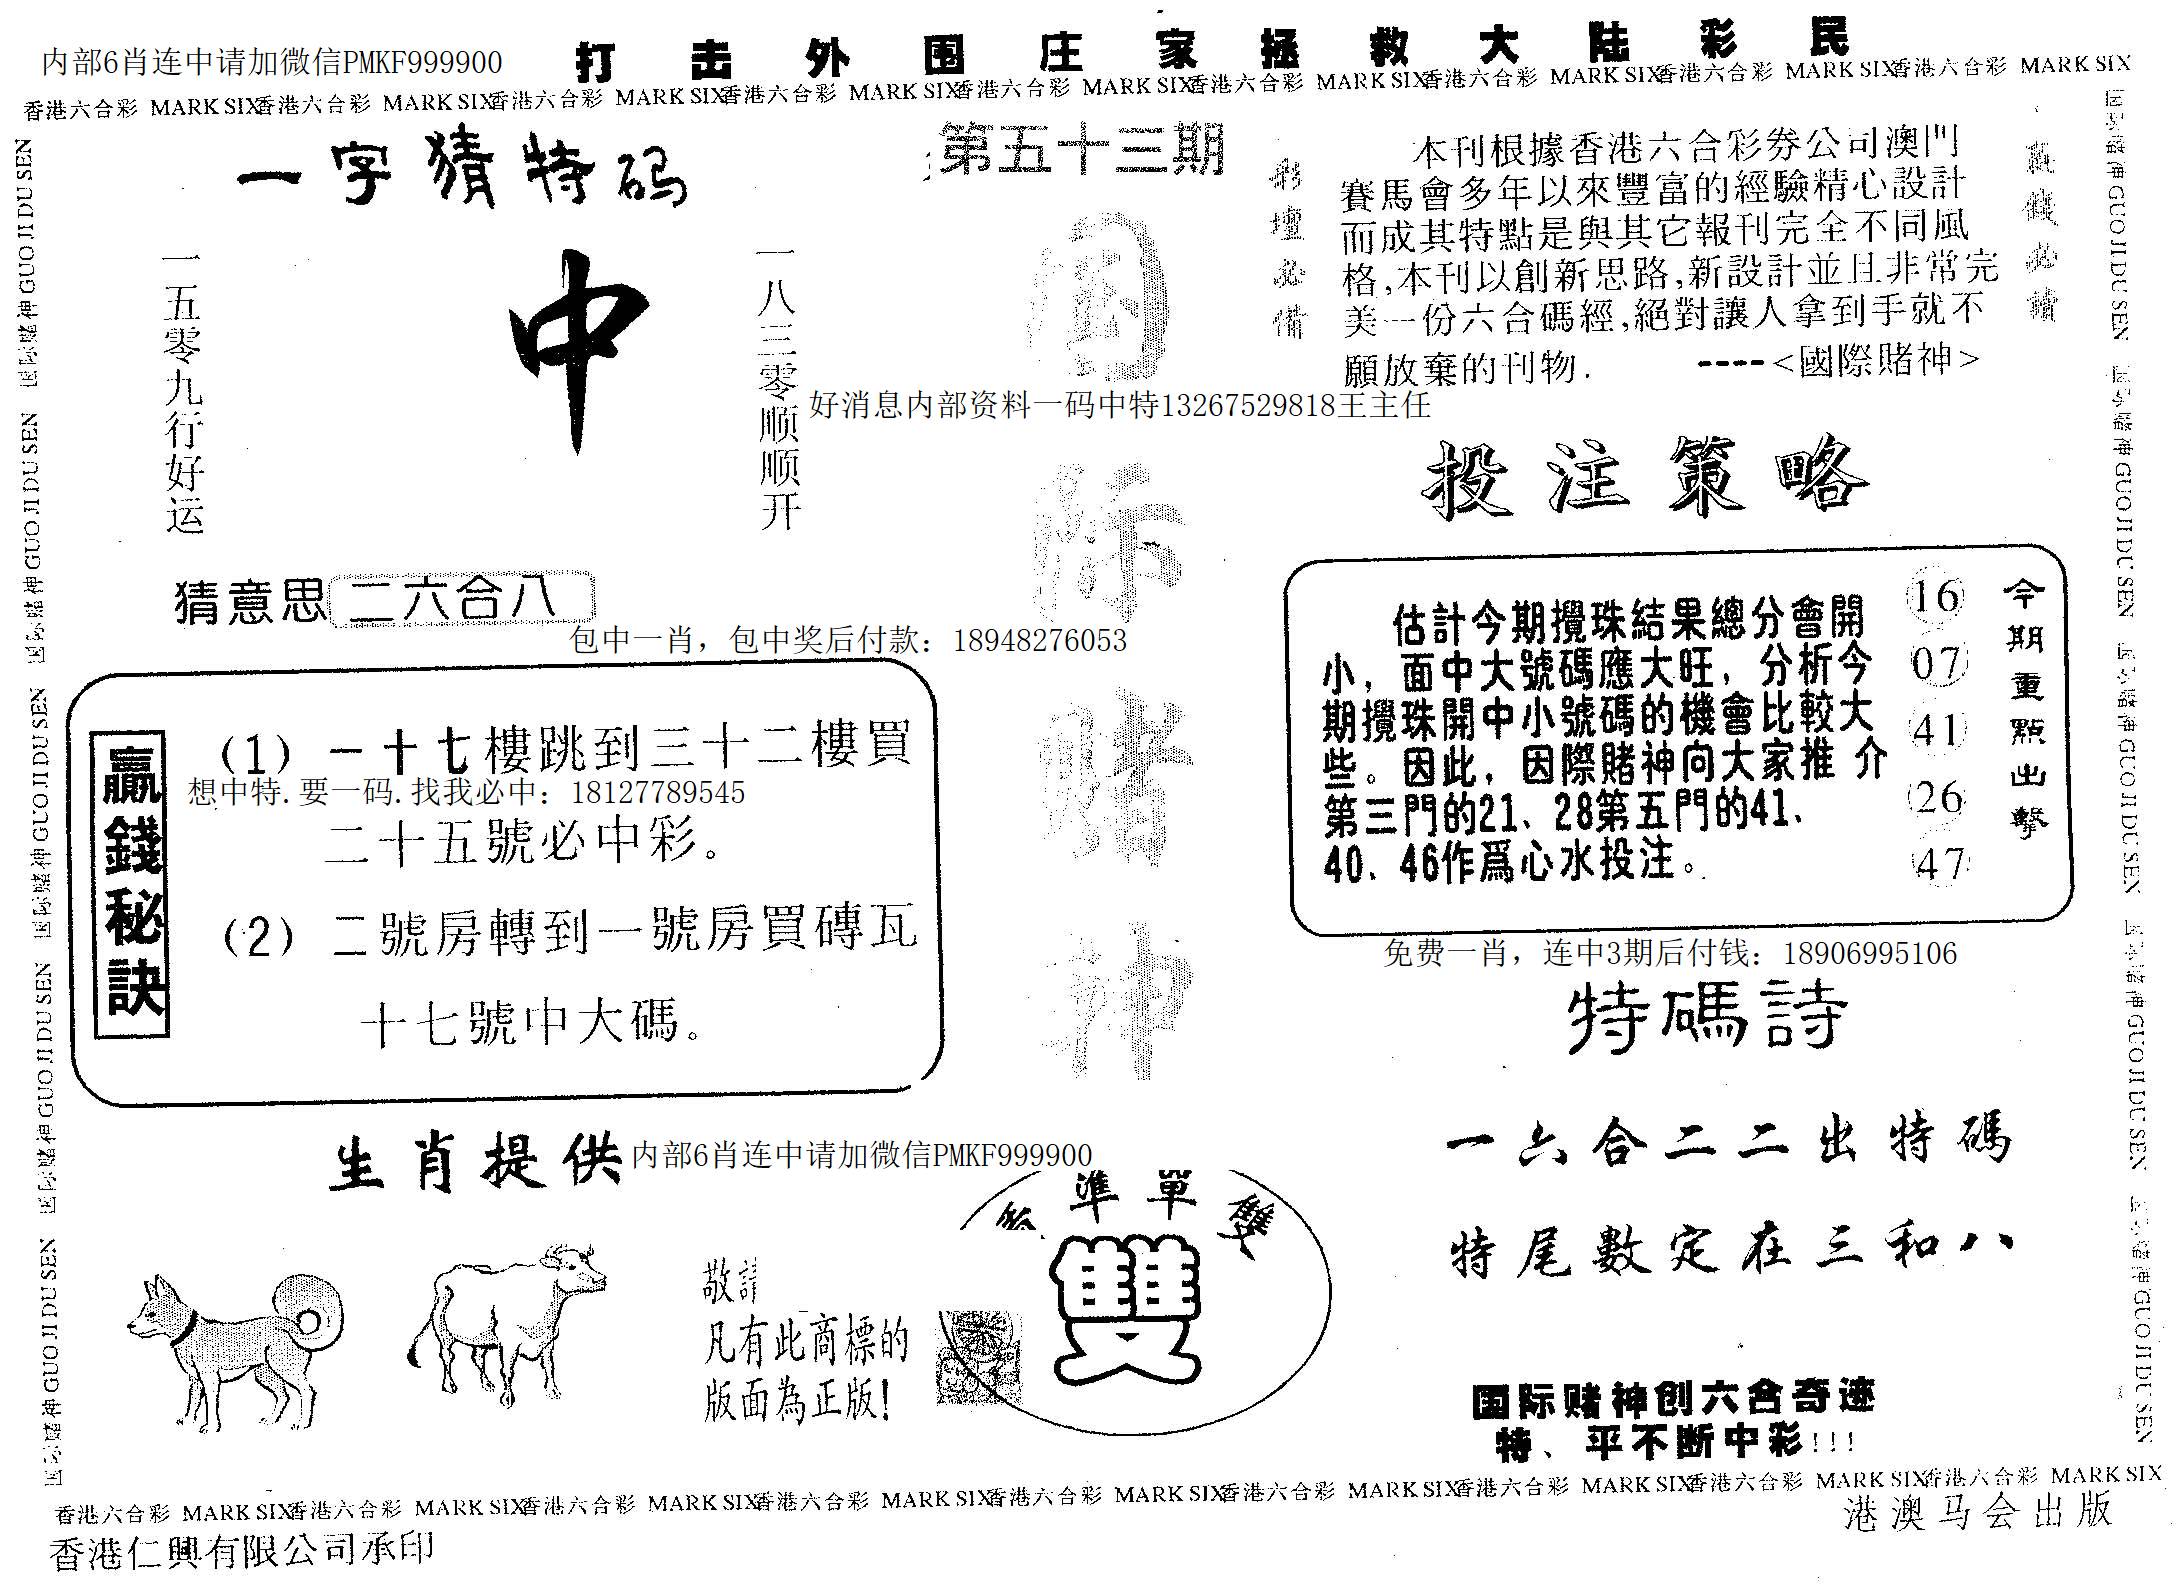 内部6肖连中请加微信PMKF999900
打击外围庄家拯救大陆彩民
香港六合彩 MARK SIX香港六合彩 MARK SIX香港六合彩 MARK SIX香港六合彩 MARK SIX香港六合彩 MARK SIX香港六合彩 MARK SIX香港六合彩 MARK SIX香港六合彩 MARK SIX香港六合彩 MARK SIX
国际赌神 GUO JI DU SEN 国际赌神 GUO JI DU SEN 国际赌神 GUO JI DU SEN 国际赌神 GUO JI DU SEN 国际赌神 GUO JI DU SEN
一字猜特码
一五零九行好运
中
一八三零顺顺开
猜意思 二六合八
第五十三期
国际赌神
彩壇必備
本刊根據香港六合彩券公司澳門
賽馬會多年以來豐富的經驗精心設計
而成其特點是與其它報刊完全不同風
格,本刊以創新思路,新設計並且非常完
美一份六合碼經,絕對讓人拿到手就不
願放棄的刊物. ----<國際賭神>
贏錢必讀
好消息内部资料一码中特13267529818王主任
投注策略
估計今期攪珠結果總分會開
小，面中大號碼應大旺，分析今
期攪珠開中小號碼的機會比較大
些。因此，因際賭神向大家推 介
第三門的21、28第五門的41、
40、46作爲心水投注。
16
07
41
26
47
今期重點出擊
包中一肖，包中奖后付款：18948276053
贏錢秘訣
(1) 一十七樓跳到三十二樓買
想中特.要一码.找我必中：18127789545
二十五號必中彩。
(2) 二號房轉到一號房買磚瓦
十七號中大碼。
免费一肖，连中3期后付钱：18906995106
特碼詩
一六合二二出特碼
特尾數定在三和八
生肖提供
内部6肖连中请加微信PMKF999900
敬請
凡有此商標的
版面為正版!
準單雙
雙
国际赌神创六合奇迹
特、平不断中彩!!!
国际赌神 GUO JI DU SEN 国际赌神 GUO JI DU SEN 国际赌神 GUO JI DU SEN 国际赌神 GUO JI DU SEN 国际赌神 GUO JI DU SEN
香港六合彩 MARK SIX香港六合彩 MARK SIX香港六合彩 MARK SIX香港六合彩 MARK SIX香港六合彩 MARK SIX香港六合彩 MARK SIX香港六合彩 MARK SIX香港六合彩 MARK SIX香港六合彩 MARK SIX
香港仁興有限公司承印
港澳马会出版